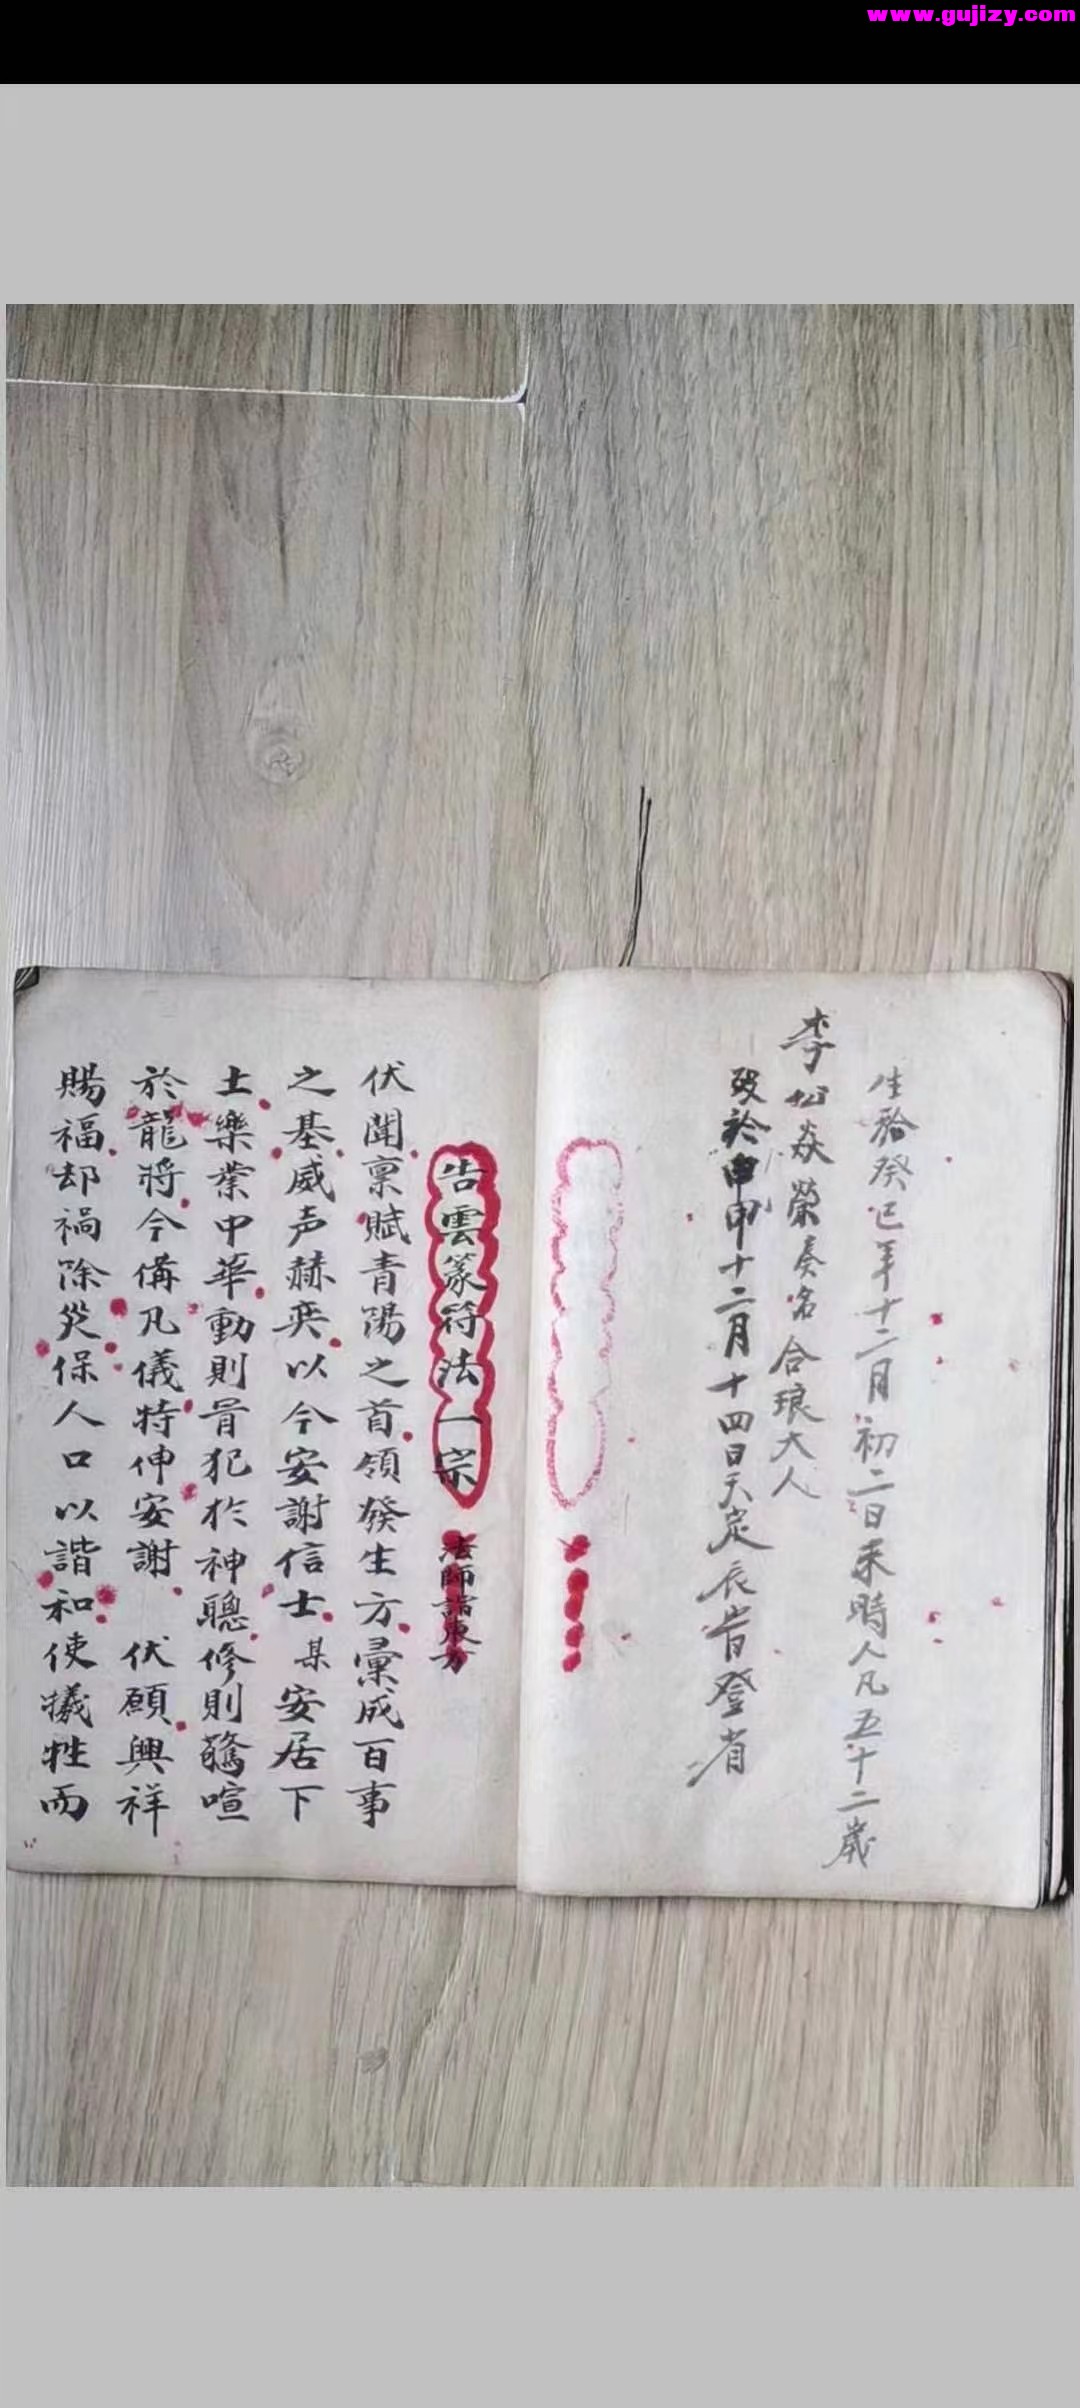 www.gujizy.com
生於癸巳年十二月初二日未時人凡五十二歲
李公焱榮奏名合琅大人
歿於申申十二月十四日天定辰時登省
告雲篆符法一宗
法師詣東方
伏聞稟賦青陽之首領發生方彙成百事
之基威声赫奕以今安謝信士某安居下
土樂業中華動則冒犯於神聰修則驚喧
於龍將今備凡儀特伸安謝 伏願興祥
賜福却禍除災保人口以諧和使犧牲而